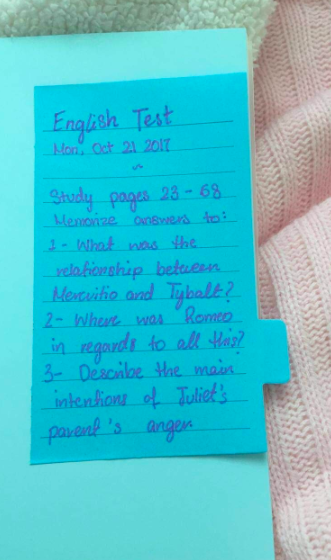 English Test
Mon, Oct 21 2017
~
Study pages 23 - 68
Memorize answers to:
1 - What was the
relationship between
Mercutio and Tybalt?
2 - Where was Romeo
in regards to all this?
3 - Describe the main
intentions of Juliet's
parent's anger